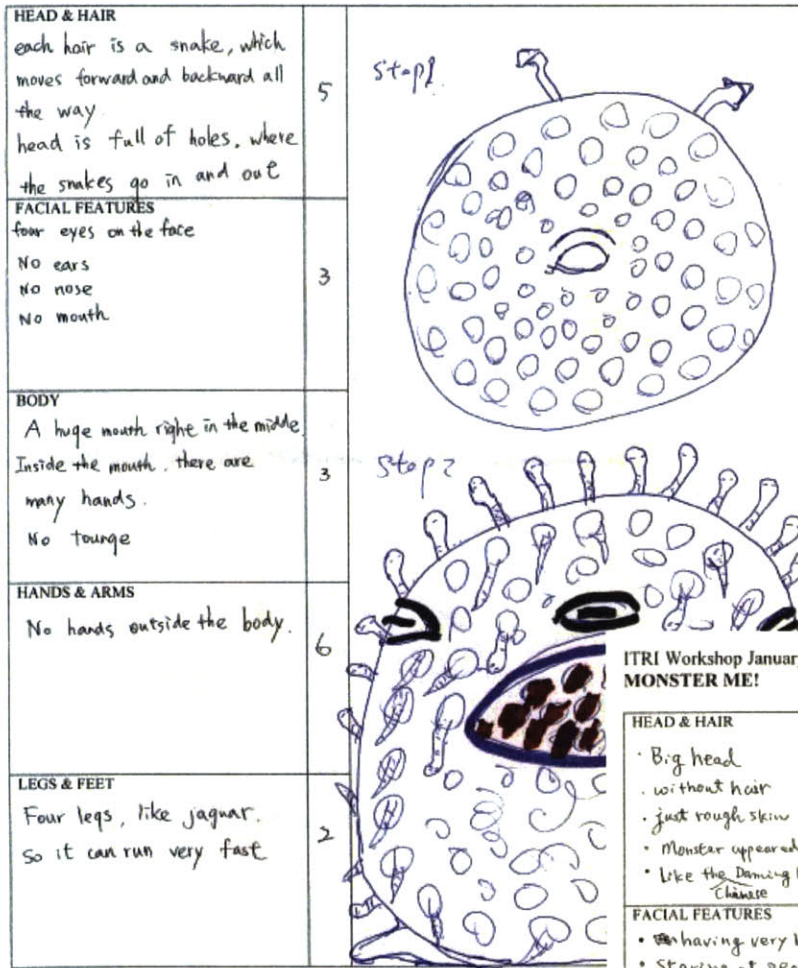 HEAD & HAIR
each hair is a snake, which
moves forward and backward all
the way
head is full of holes. where
the snakes go in and out
5
FACIAL FEATURES
four eyes on the face
No ears
No nose
No mouth
3
BODY
A huge mouth right in the middle.
Inside the mouth. there are
many hands.
No tounge
3
HANDS & ARMS
No hands outside the body.
6
LEGS & FEET
Four legs, like jaguar.
so it can run very fast
2
Step1
Step2
ITRI Workshop Januar
MONSTER ME!
HEAD & HAIR
· Big head
· without hair
· just rough skin
· Monster uppeared
· Like the Daming
Chinese
FACIAL FEATURES
• having very
• Staring at